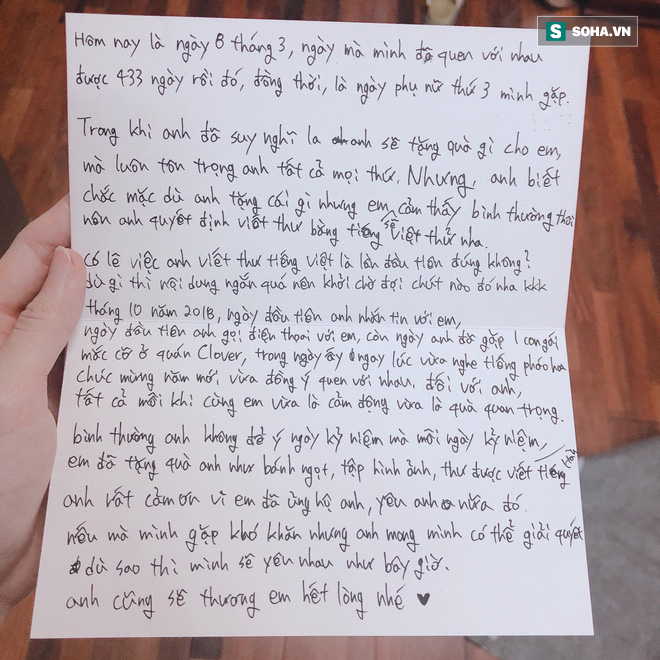 S SOHA.VN
Hôm nay là ngày 8 tháng 3, ngày mà mình đã quen với nhau
được 433 ngày rồi đó, đồng thời, là ngày phụ nữ thứ 3 mình gặp.
Trong khi anh đã suy nghĩ la anh sẽ tặng quà gì cho em,
mà luôn tôn trọng anh tất cả mọi thứ. Nhưng, anh biết
chắc mặc dù anh tặng cái gì nhưng em sẽ cảm thấy bình thường thoi
nên anh quyết định viết thư bằng tiếng Việt thử nha.
có lẽ việc anh viết thư tiếng việt là lần đầu tiên đúng không?
dù gì thì nôi dung ngắn quá nên khỏi chờ đợi chút nào đó nha kkk
tháng 10 năm 2018, ngày đầu tiên anh nhắn tin với em,
ngày đầu tiên anh gọi điện thoại với em, còn ngày anh đã gặp 1 con gái
mắc cỡ ở quán Clover, trong ngày ấy ngay lúc vừa nghe tiếng pháo hoa
chúc mừng năm mới, vừa đồng ý quen với nhau. đối với anh,
tất cả mỗi khi cùng em vừa là cảm động vừa là quà quan trọng.
bình thường anh không để ý ngày kỷ niệm mà mỗi ngày kỷ niệm,
em đã tặng quà anh như bánh ngọt, tập hình ảnh, thư được viết tiếng Hàn
anh rất cảm ơn vì em đã ủng hộ anh, yêu anh nữa đó.
nếu mà mình gặp khó khăn nhưng anh mong mình có thể giải quyết
dù sao thì mình sẽ yêu nhau như bây giờ.
anh cũng sẽ thương em hết lòng nhé ♥